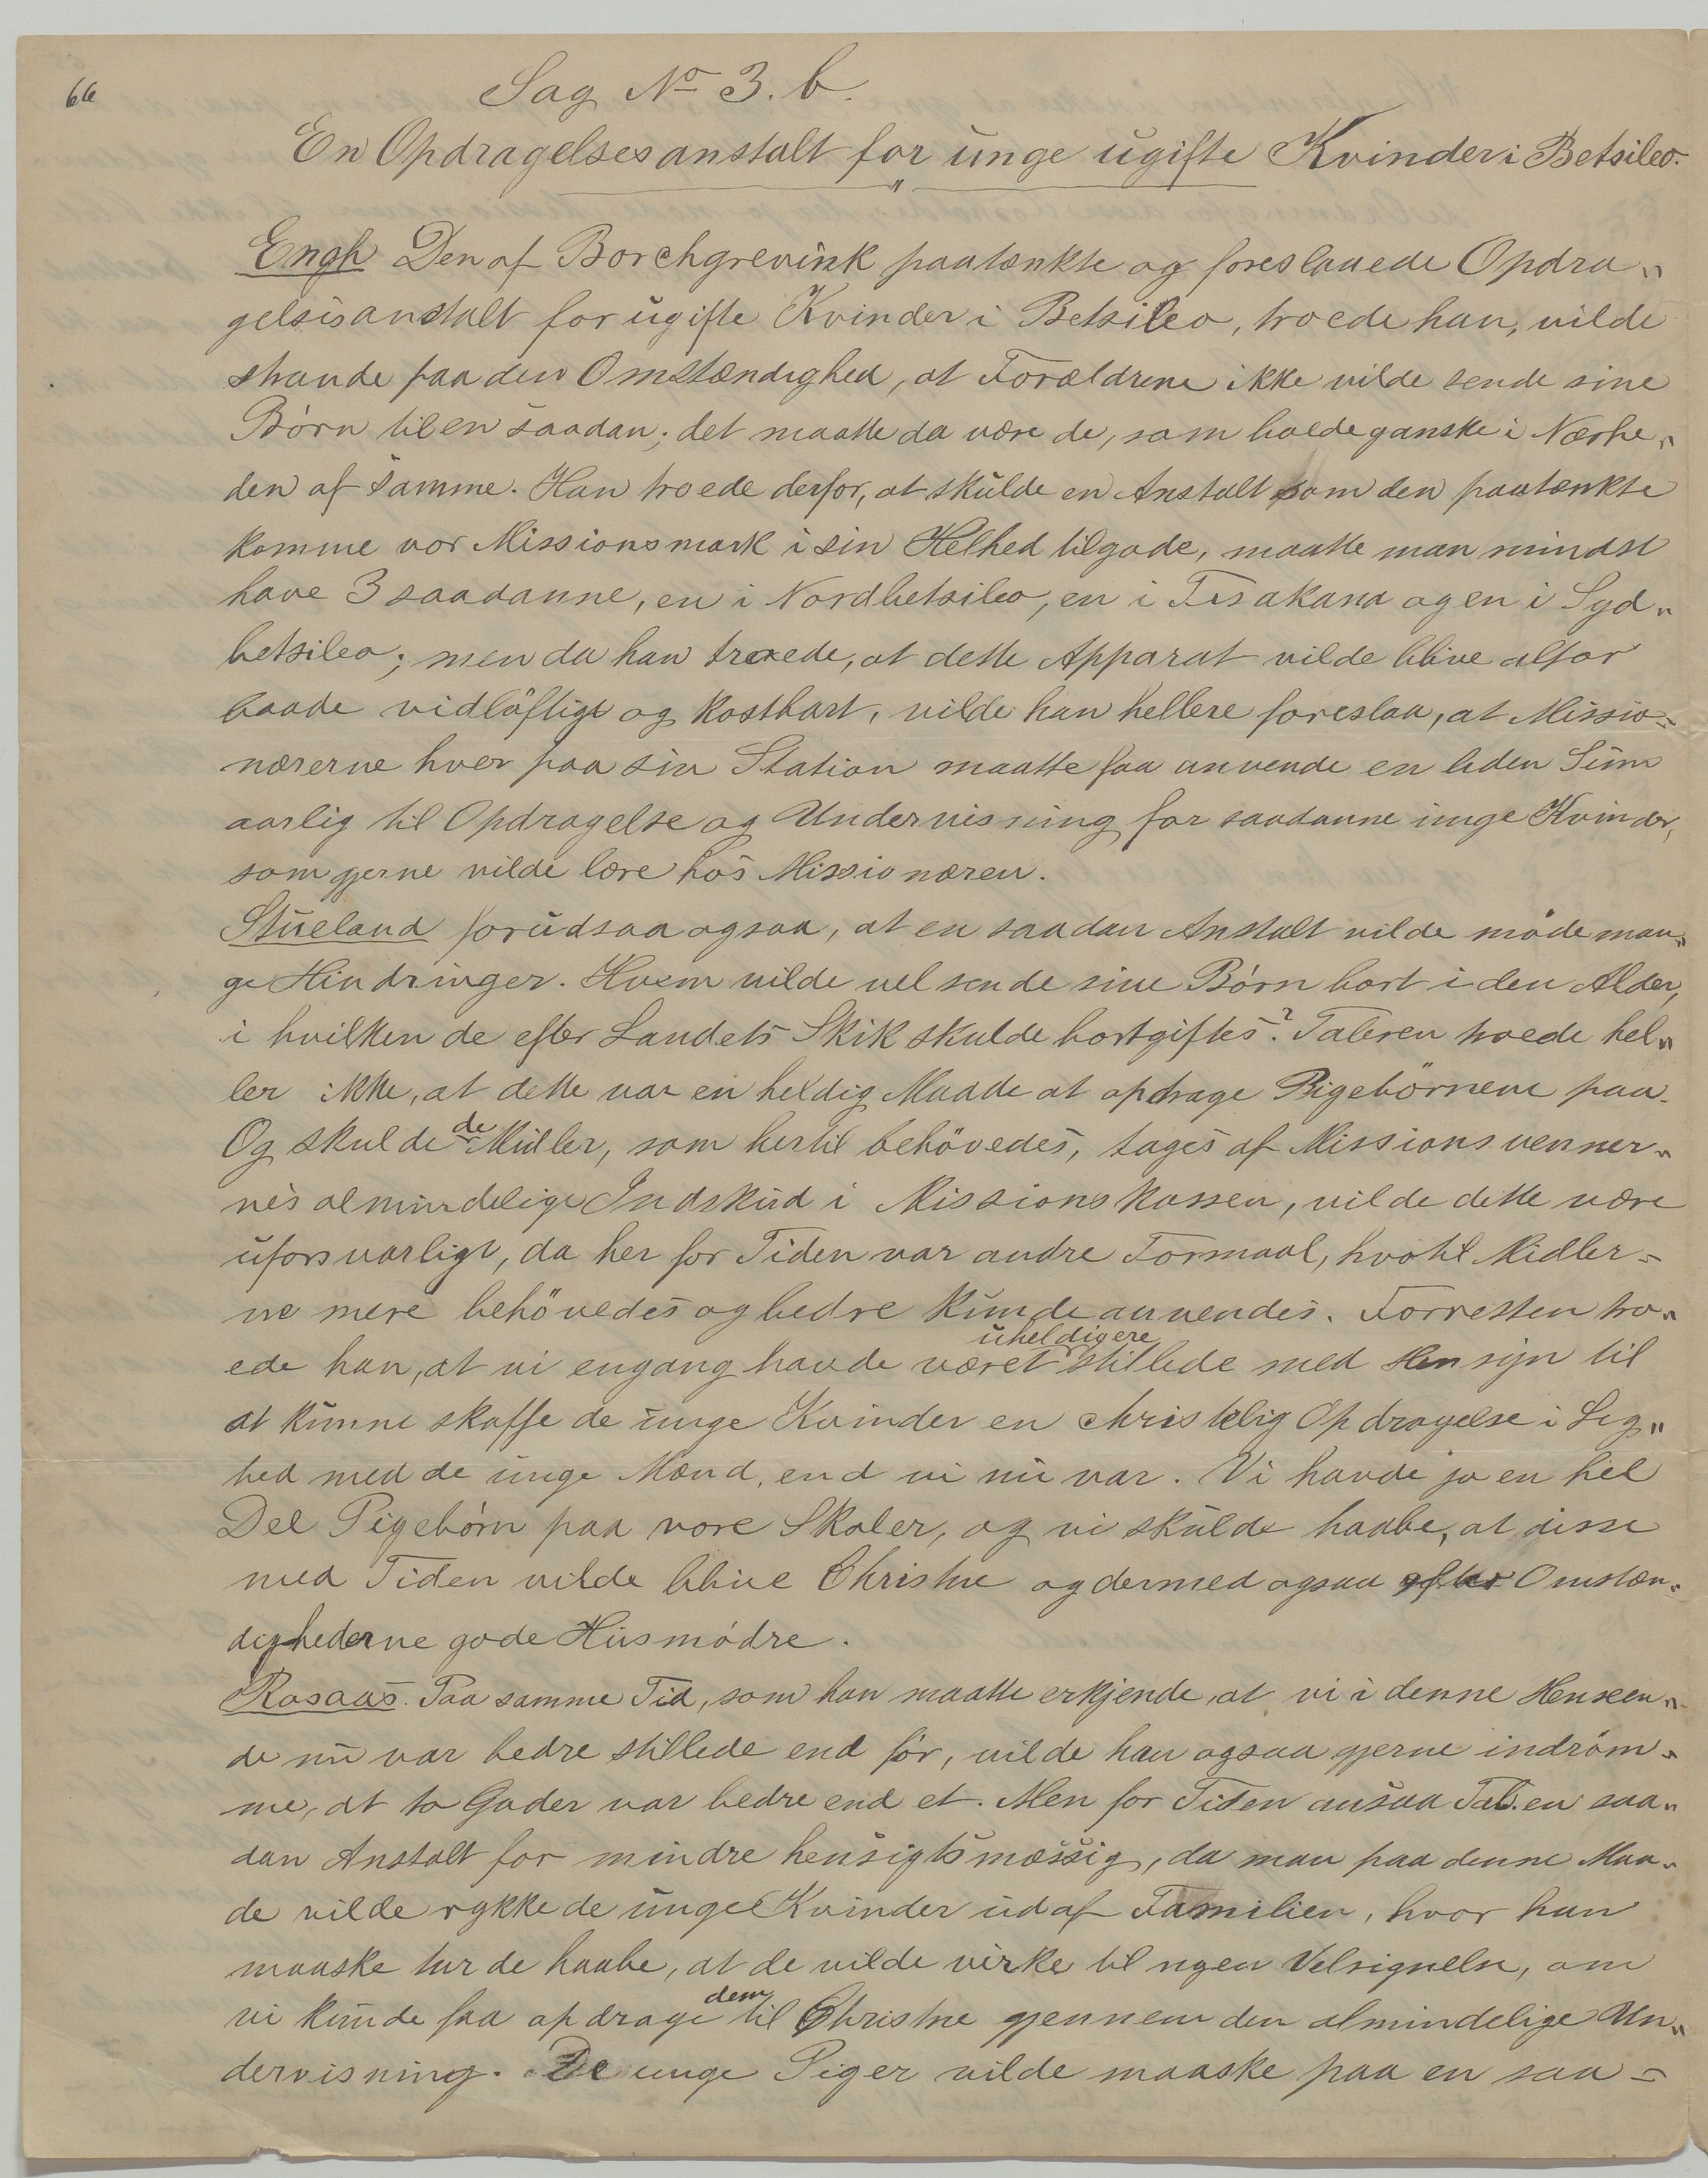 66
Sag No 3. b.
En Opdragelsesanstalt for unge ugifte Kvinder i Betsileo.
Engh Den af Borchgrevink paatænkte og foreslaaede Opdra„
gelsesanstalt for ugifte Kvinder i Betsileo, troede han, vilde
strande paa den Omstændighed, at Forældrene ikke vilde sende sine
Børn til en saadan; det maatte da være de, som boede ganske i Nærhe„
den af samme. Han troede derfor, at skulde en Anstalt som den paatænkte
komme vor Missionsmark i sin Helhed tilgode, maatte man mindst
have 3 saadanne, en i Nordbetsileo, en i Fisakana og en i Syd„
betsileo; men da han troede, at dette Apparat vilde blive altfor
baade vidløftigt og kostbart, vilde han hellere foreslaa, at Missio=
nærerne hver paa sin Station maatte faa anvende en liden Sum
aarlig til Opdragelse og Undervisning for saadanne unge Kvinder,
som gjerne vilde lære hos Missionæren.
Stueland forudsaa ogsaa, at en saadan Anstalt vilde møde man„
ge Hindringer. Hvem vilde vel sende sine Børn bort i den Alder,
i hvilken de efter Landets Skik skulde bortgiftes? Taleren troede hel„
ler ikke, at dette var en heldig Maade at opdrage Pigebørnene paa.
Og skulde de Midler, som hertil behøvedes, tages af Missionsvenner„
nes almindelige Indskud i Missionskassen, vilde dette være
uforsvarligt, da her for Tiden var andre Formaal, hvortil Midler=
ne mere behøvedes og bedre kunde anvendes. Forresten tro„
ede han, at vi engang havde været uheldigere stillede med Hensyn til
at kunne skaffe de unge Kvinder en christelig Opdragelse i Lig„
hed med de unge Mænd, end vi nu var. Vi havde jo en hel
Del Pigebørn paa vore Skoler, og vi skulde haabe, at disse
med Tiden vilde blive Christne og dermed ogsaa efter Omstæn„
dighederne gode Husmødre.
Rosaas. Paa samme Tid, som han maatte erkjende, at vi i denne Henseen„
de nu var bedre stillede end før, vilde han ogsaa gjerne indrøm„
me, at to Goder var bedre end et. Men for Tiden ansaa Tal. en saa„
dan Anstalt for mindre hensigtsmæssig, da man paa denne Maa„
de vilde rykke de unge Kvinder ud af Familien, hvor han
maaske turde haabe, at de vilde virke til nogen Velsignelse, om
vi kunde faa opdrage dem til Christne gjennem den almindelige Un„
dervisning. De unge Piger vilde maaske paa en saa=